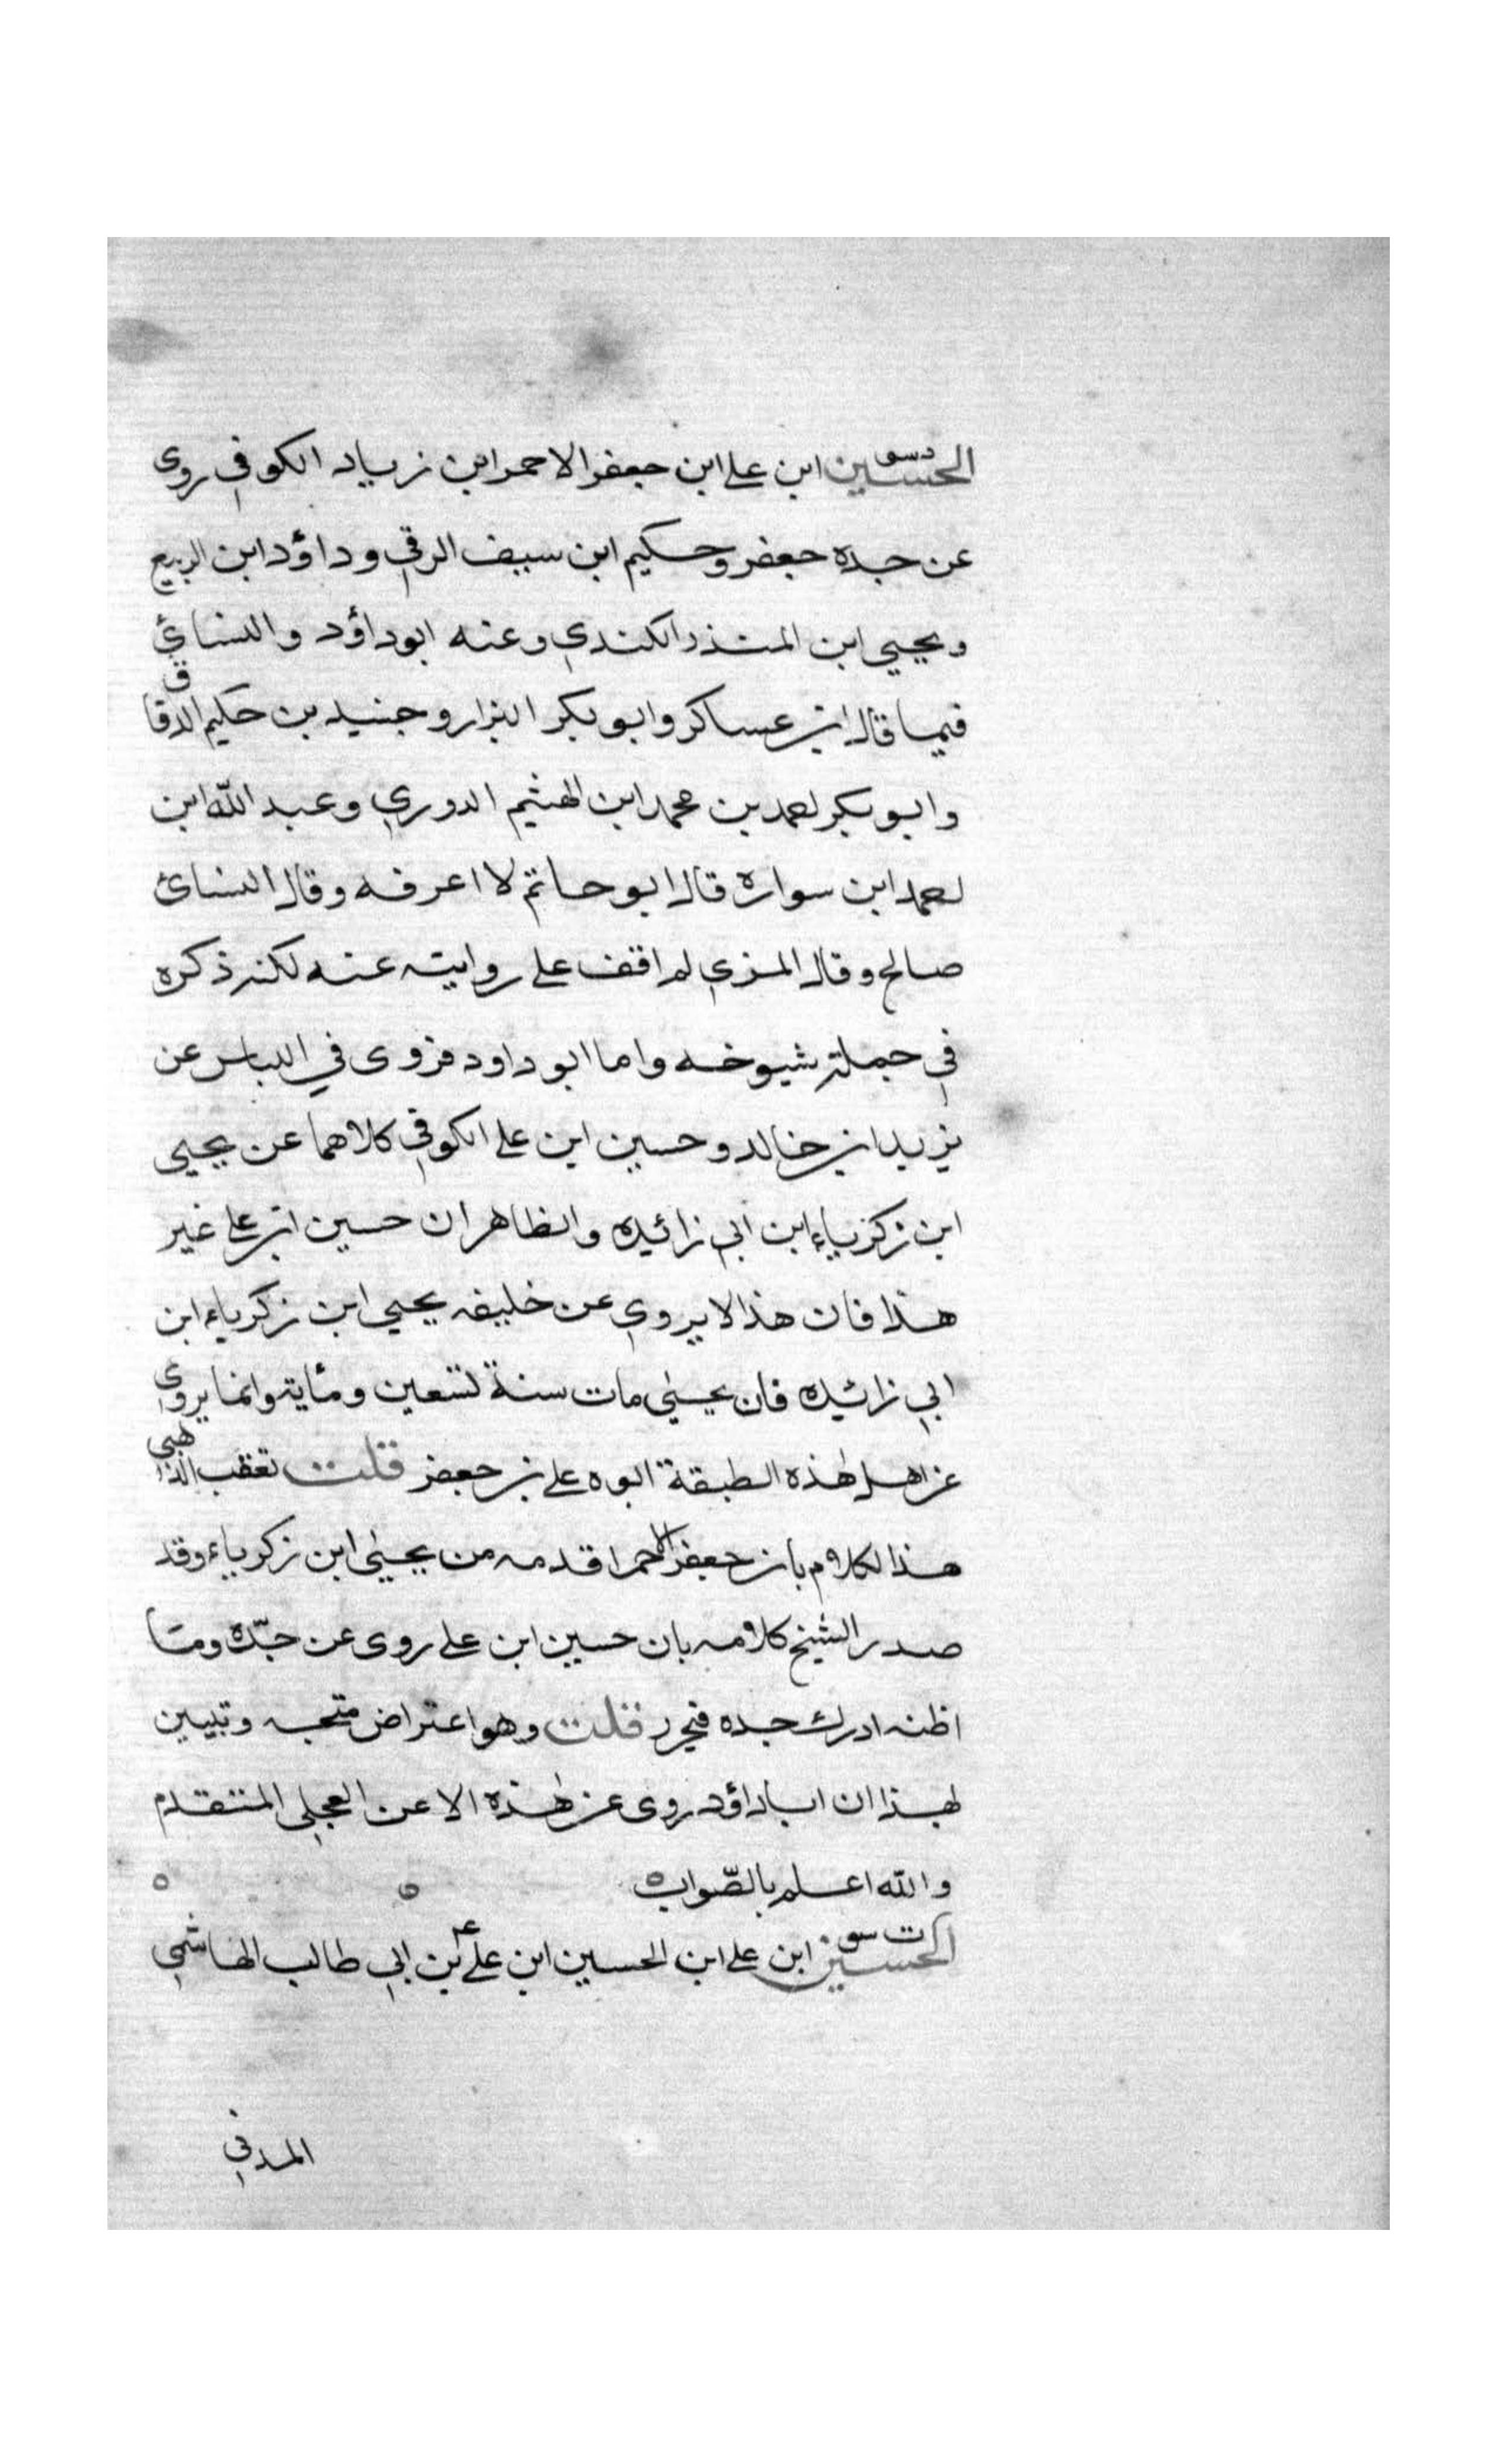 الحسين ابن علي ابن جعفر الاحمر ابن زياد الكوفي روى
عن جده جعفر وحكيم ابن سيف الرقي وداؤد ابن الربيع
ويحيي ابن المنذر الكندي وعنه ابو داؤد والنسائي
فيما قال ابن عساكر وابو بكر البزار وجنيد بن حكيم الدقاق
وابو بكر احمد بن محمد ابن الهثيم الدوري وعبد الله ابن
احمد ابن سواره قال ابو حاتم لا اعرفه وقال النسائ
صالح وقال المزي لم اقف على روايته عنه لكنه ذكره
في جملة شيوخه واما ابو داود فروى في اللباس عن
يزيد ابن خالد وحسين ابن علي الكوفي كلاهما عن يحيى
ابن زكرياء ابن ابي زائيده والظاهر ان حسين ابن علي غير
هذا فان هذا لا يروي عن خليفه يحيى ابن زكرياء ابن
ابي زائيده فان يحيى مات سنة تسعين ومئاية وانما يروي
عن اهل هذه الطبقة ابوه علي بن جعفر قلت تعقب الذهبي
هذا الكلام بان جعفر الاحمر اقدمه من يحيى ابن زكرياء وقد
صدر الشيخ كلامه بان حسين ابن علي روى عن جده وما
اظنه ادرك جده فيحرر قلت وهو اعتراض متجه وتبيين
بهذا ان اباداؤد روى عن هذه الا عن العجلي المتقدم
والله اعلم بالصواب
ت س
الحسين ابن علي ابن الحسين ابن علي بن ابي طالب الهاشمي
المدني